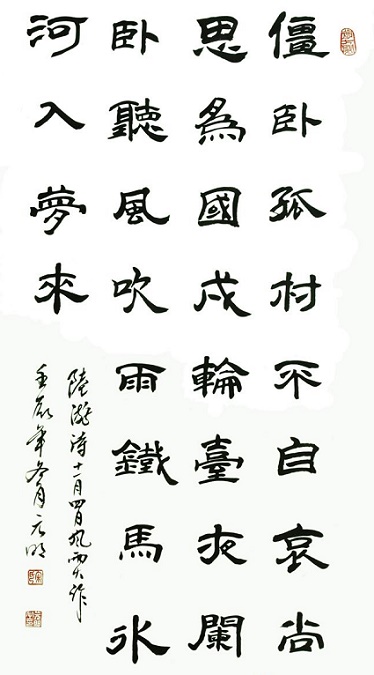 僵卧孤村不自哀尚
思為國戍輪臺夜闌
卧聽風吹雨鐵馬氷
河入夢來
陸游詩十一月四日風雨大作
壬辰年冬月元明